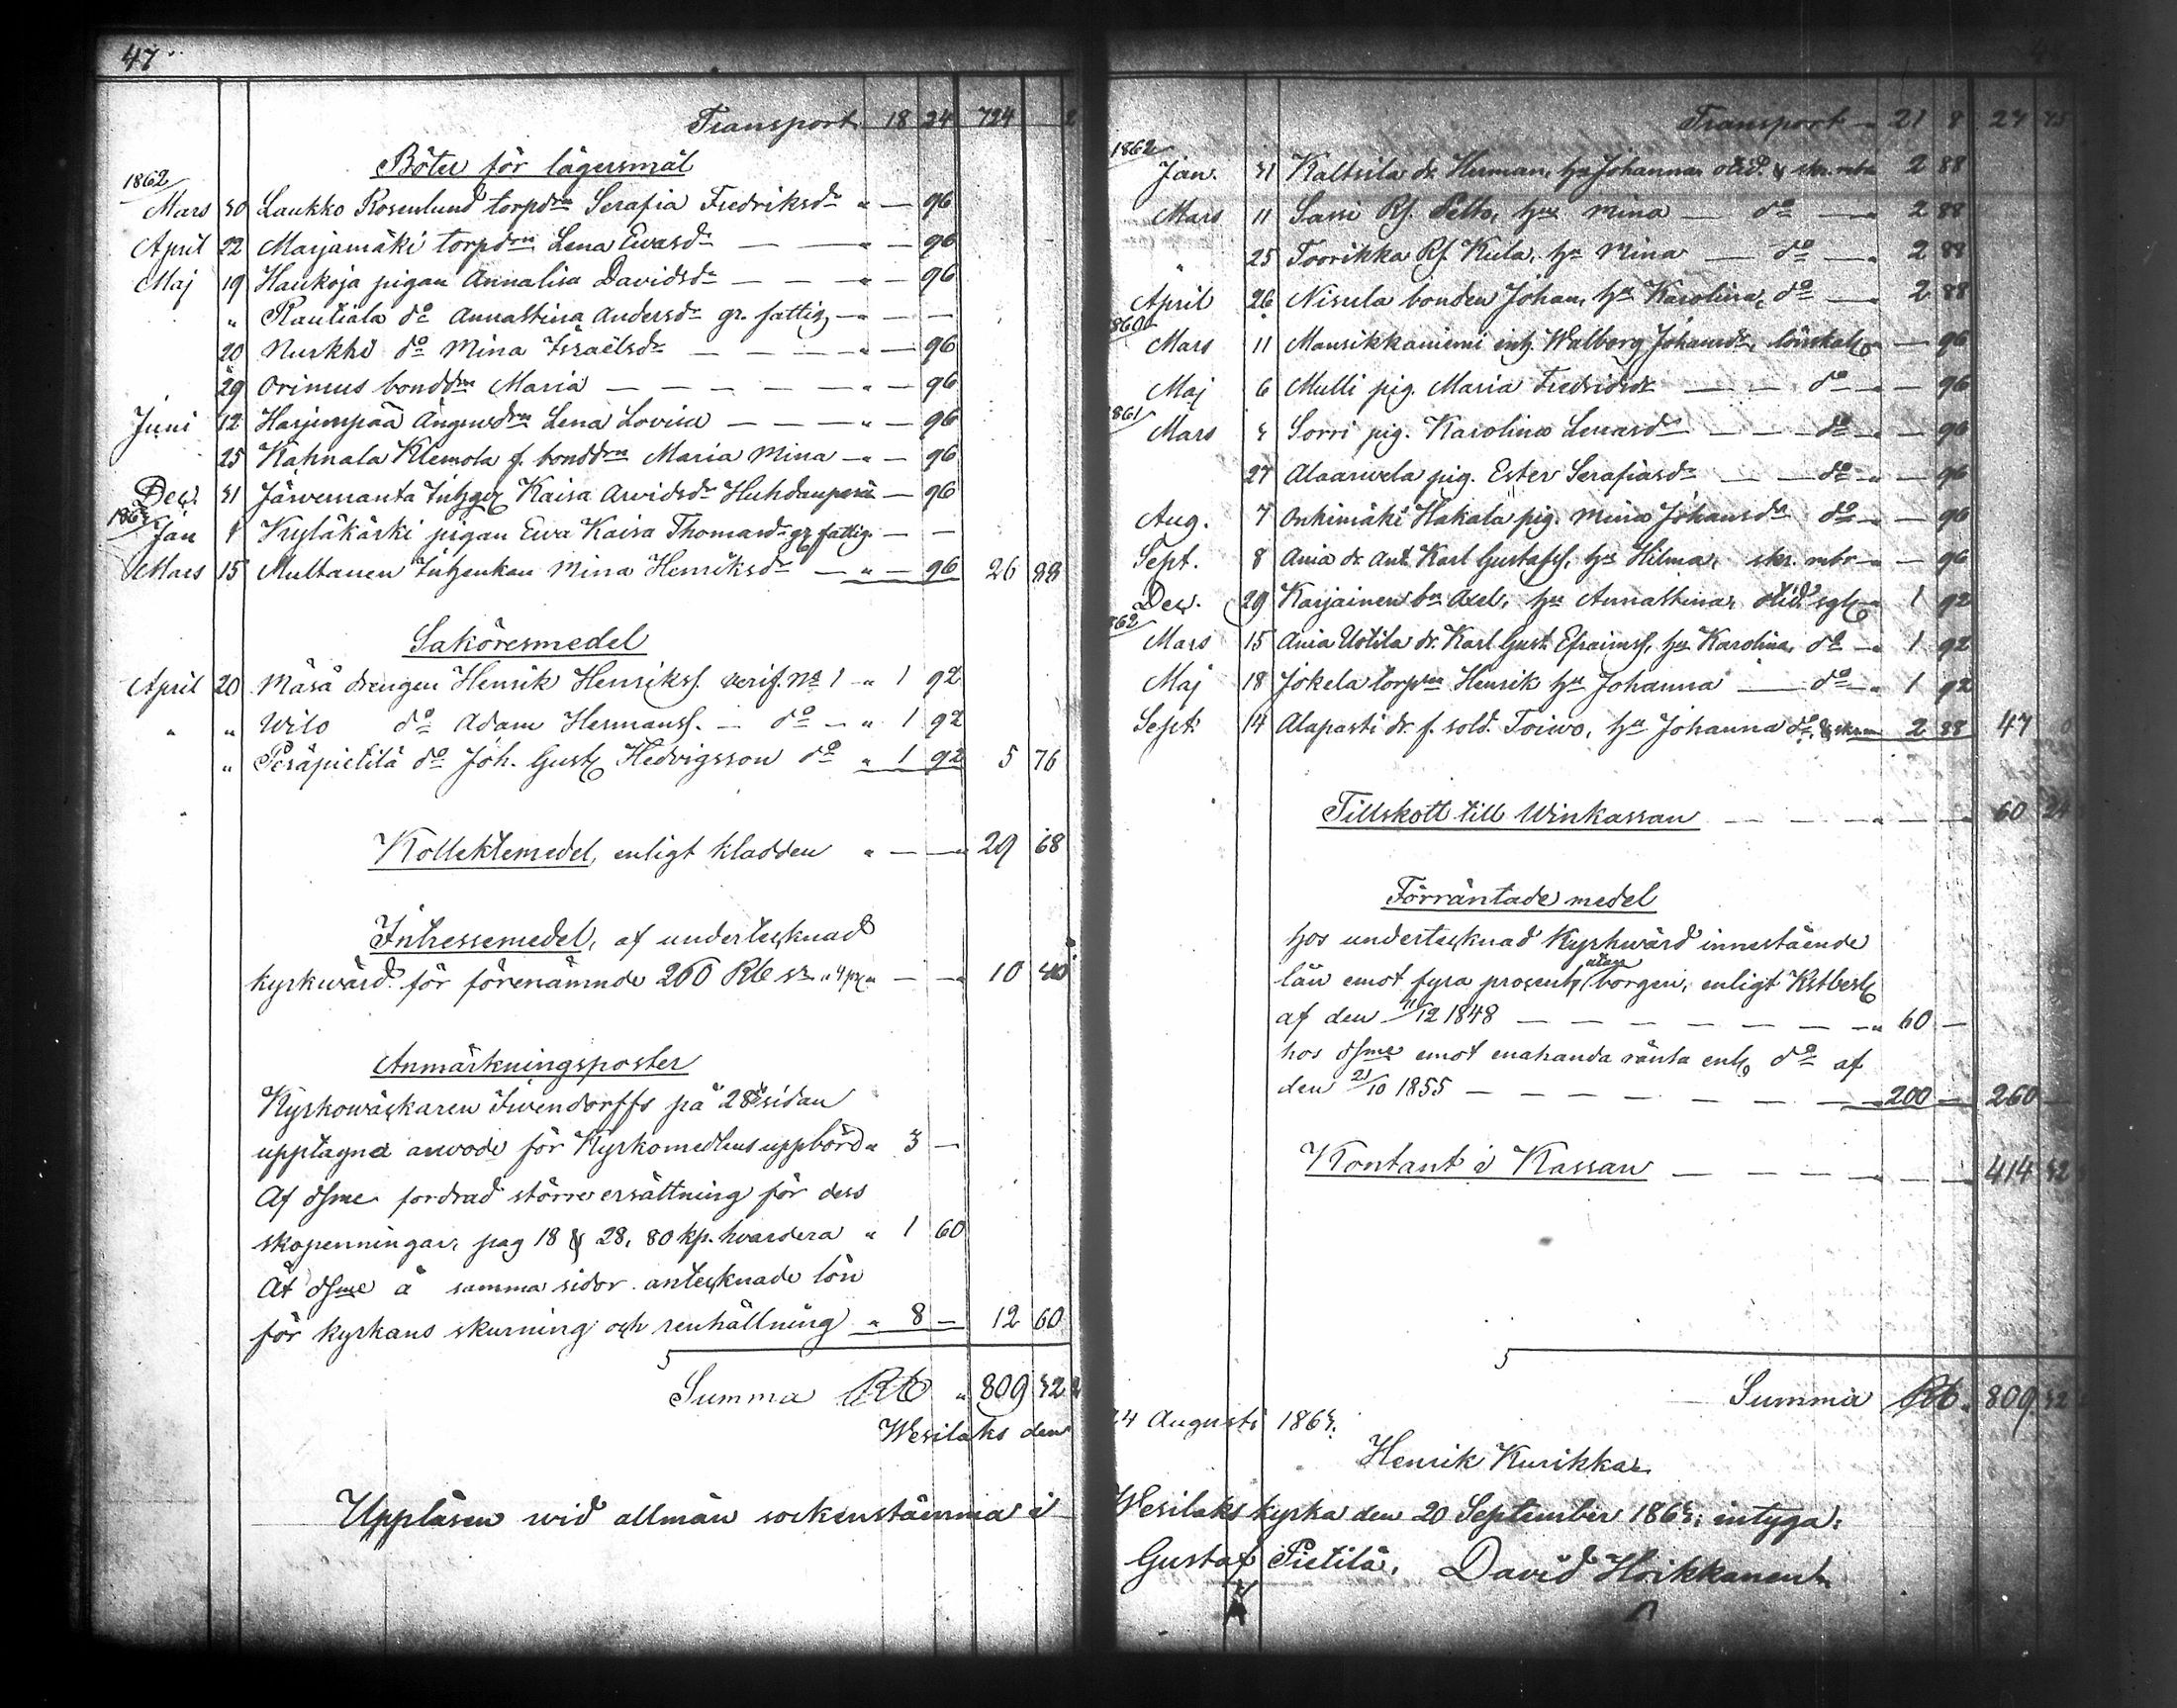 47
Transport 18 24 724 2
Böter för lägersmål
1862
Mars 30 Laukko Rosenlund torpdrn Serafia Fredriksdr " — 96
April 22 Marjamäki torpdrn Lena Ewasdr — — " — 96
Maj 19 Haukoja pigan Annalisa Davidsdr — — " — 96
" Rautiala do Annastina Andersdr gr. fattig — " — —
20 Nurkki do Mina Israëlsdr — — — " — 96
29 Orimus bonddrn Maria — — — — — " — 96
Juni 12 Harjunpää Ängswdrn Lena Lovisa — — — " — 96
25 Kahnala Klemola f. bonddrn Maria Mina — " — 96
Dec. 31 Järvenranta Kaisa Arvidsdr Huhdanperä — 96
1863
Jan Kyläkäski pigan Ewa Kaisa Thomasdr gr fattig — —
Mars 15 Multanen Inhenkan Mina Henriksdr — " — 96 26 88
Saköresmedel
April 20 Mäsä drengen Henrik Henrikss. verif. No 1 — " 1 92
" " Wilo do Adam Hermanss. — do — " 1 92
" Peräpietilä do Joh. Gust. Hedvigsson do " 1 92 5 76
Kollektemedel, enligt kladden " — — " 29 68
Intressemedel, af undertecknad
kyrkwärd för förenämnde 260 Rbl " — — " 10 40
Anmärkningsposter
Kyrkowäckaren Iwendorffs på 28de sidan
upptagna arvode för Kyrkomedlens uppbörd " 3 —
Af dsme fordrad större ersättning för dess
skopenningar, pag 18 & 28, 80 kp. hvardera " 1 60
Åt dsme å samma sidor antecknade lön
för kyrkans skurning och renhållning " 8 — 12 60
Summa Rbl " 809 32 2
Wesilaks den
Uppläsen wid allmän sockenstämma i
Transport " 21 8 27 75
1862
Jan. 31 Kaltsila dr. Herman, hu Johanna, otid. & skr. mbr 2 88
Mars 11 Sassi Rf. Pelto, hu Mina — do — " 2 88
" 25 Toorikka Rf. Kula, hu Mina — do — " 2 88
April 26 Nisula bonden Johan, hu Karolina, do — 2 88
1860
Mars 11 Mansikkaniemi inh. Walborg Johansdr, lönskal. " — 96
Maj 6 Mulli pig. Maria Fredriksdr — — do — " — 96
1861
Mars 3 Sorri pig. Karolina Lenasdr — — do — " — 96
27 Alaarwela pig. Ester Serafiasdr — — do — " — 96
Aug. 7 Onkimäki Hakala pig. Mina Johansdr do — " — 96
Sept. 8 Ania dr. Ant. Karl Gustafss. hu Hilma, skr. mbr — " — 96
Dec. 29 Karjainen bn Axel, hu Annastina, otid. sgl. " 1 92
1862
Mars 15 Ania Uotila dr. Karl Gust. Efraimss. hu Karolina, do — " 1 92
Maj 18 Jokela torpn Henrik hu Johanna — do — " 1 92
Sept. 14 Alapasti dr. f. sold. Toiwo, hu Johanna do & skr. m 2 88 47 0
Tillskott till Winkassan — — — " — — " 60 24
Förräntade medel
hos undertecknad Kyrkwärd innestående
lån emot fyra procent, utan borgen, enligt Kstbesl.
af den 11/12 1848 — — — — — — — " 60 —
hos dsme emot enahanda ränta enl. do af
den 21/10 1855 — — — — — — — " 200 — 260 —
Kontant i Kassan — — — — " — — " 414 32
Summa Rbl. " 809 32 2
24 Augusti 1863.
Henrik Kurikka
Wesilaks kyrka den 20 September 1863; intyga:
Gustaf Pietilä, David Hoikkanen